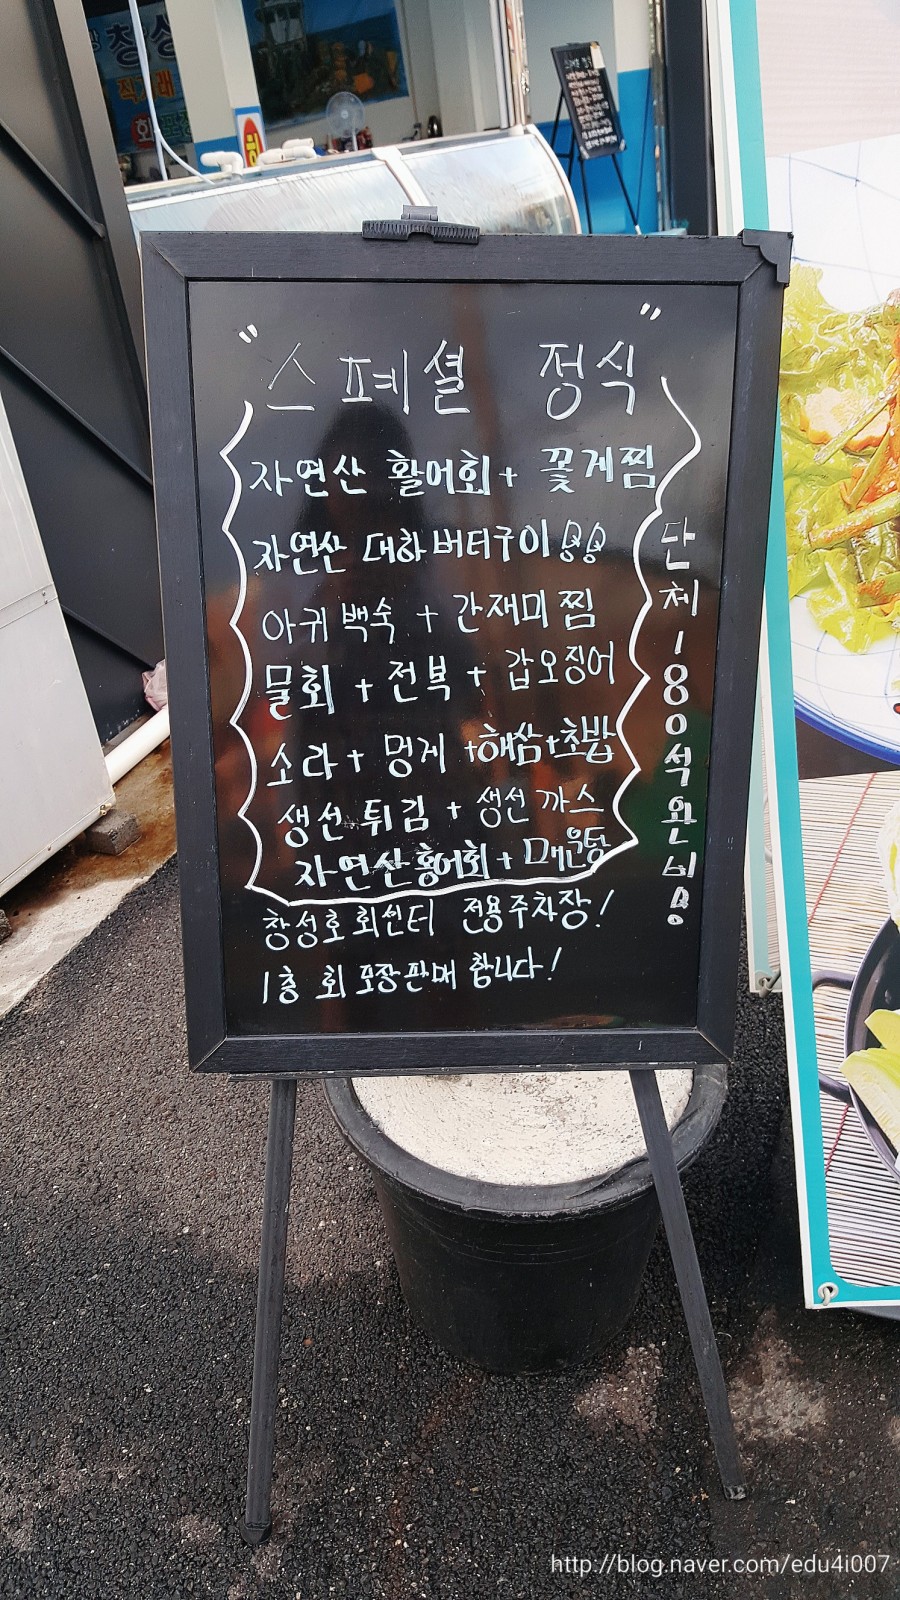 창성
직거래
회포장
" 스페셜 정식 "
자연산 활어회 + 꽃게찜
자연산 대하 버터구이
아귀백숙 + 간재미찜
물회 + 전복 + 갑오징어
소라 + 멍게 + 해삼 + 초밥
생선튀김 + 생선까스
자연산 홍어회 + 매운탕
단체 180석 완비
창성호 회센터 전용주차장!
1층 회 포장판매 합니다!
http://blog.naver.com/edu4i007